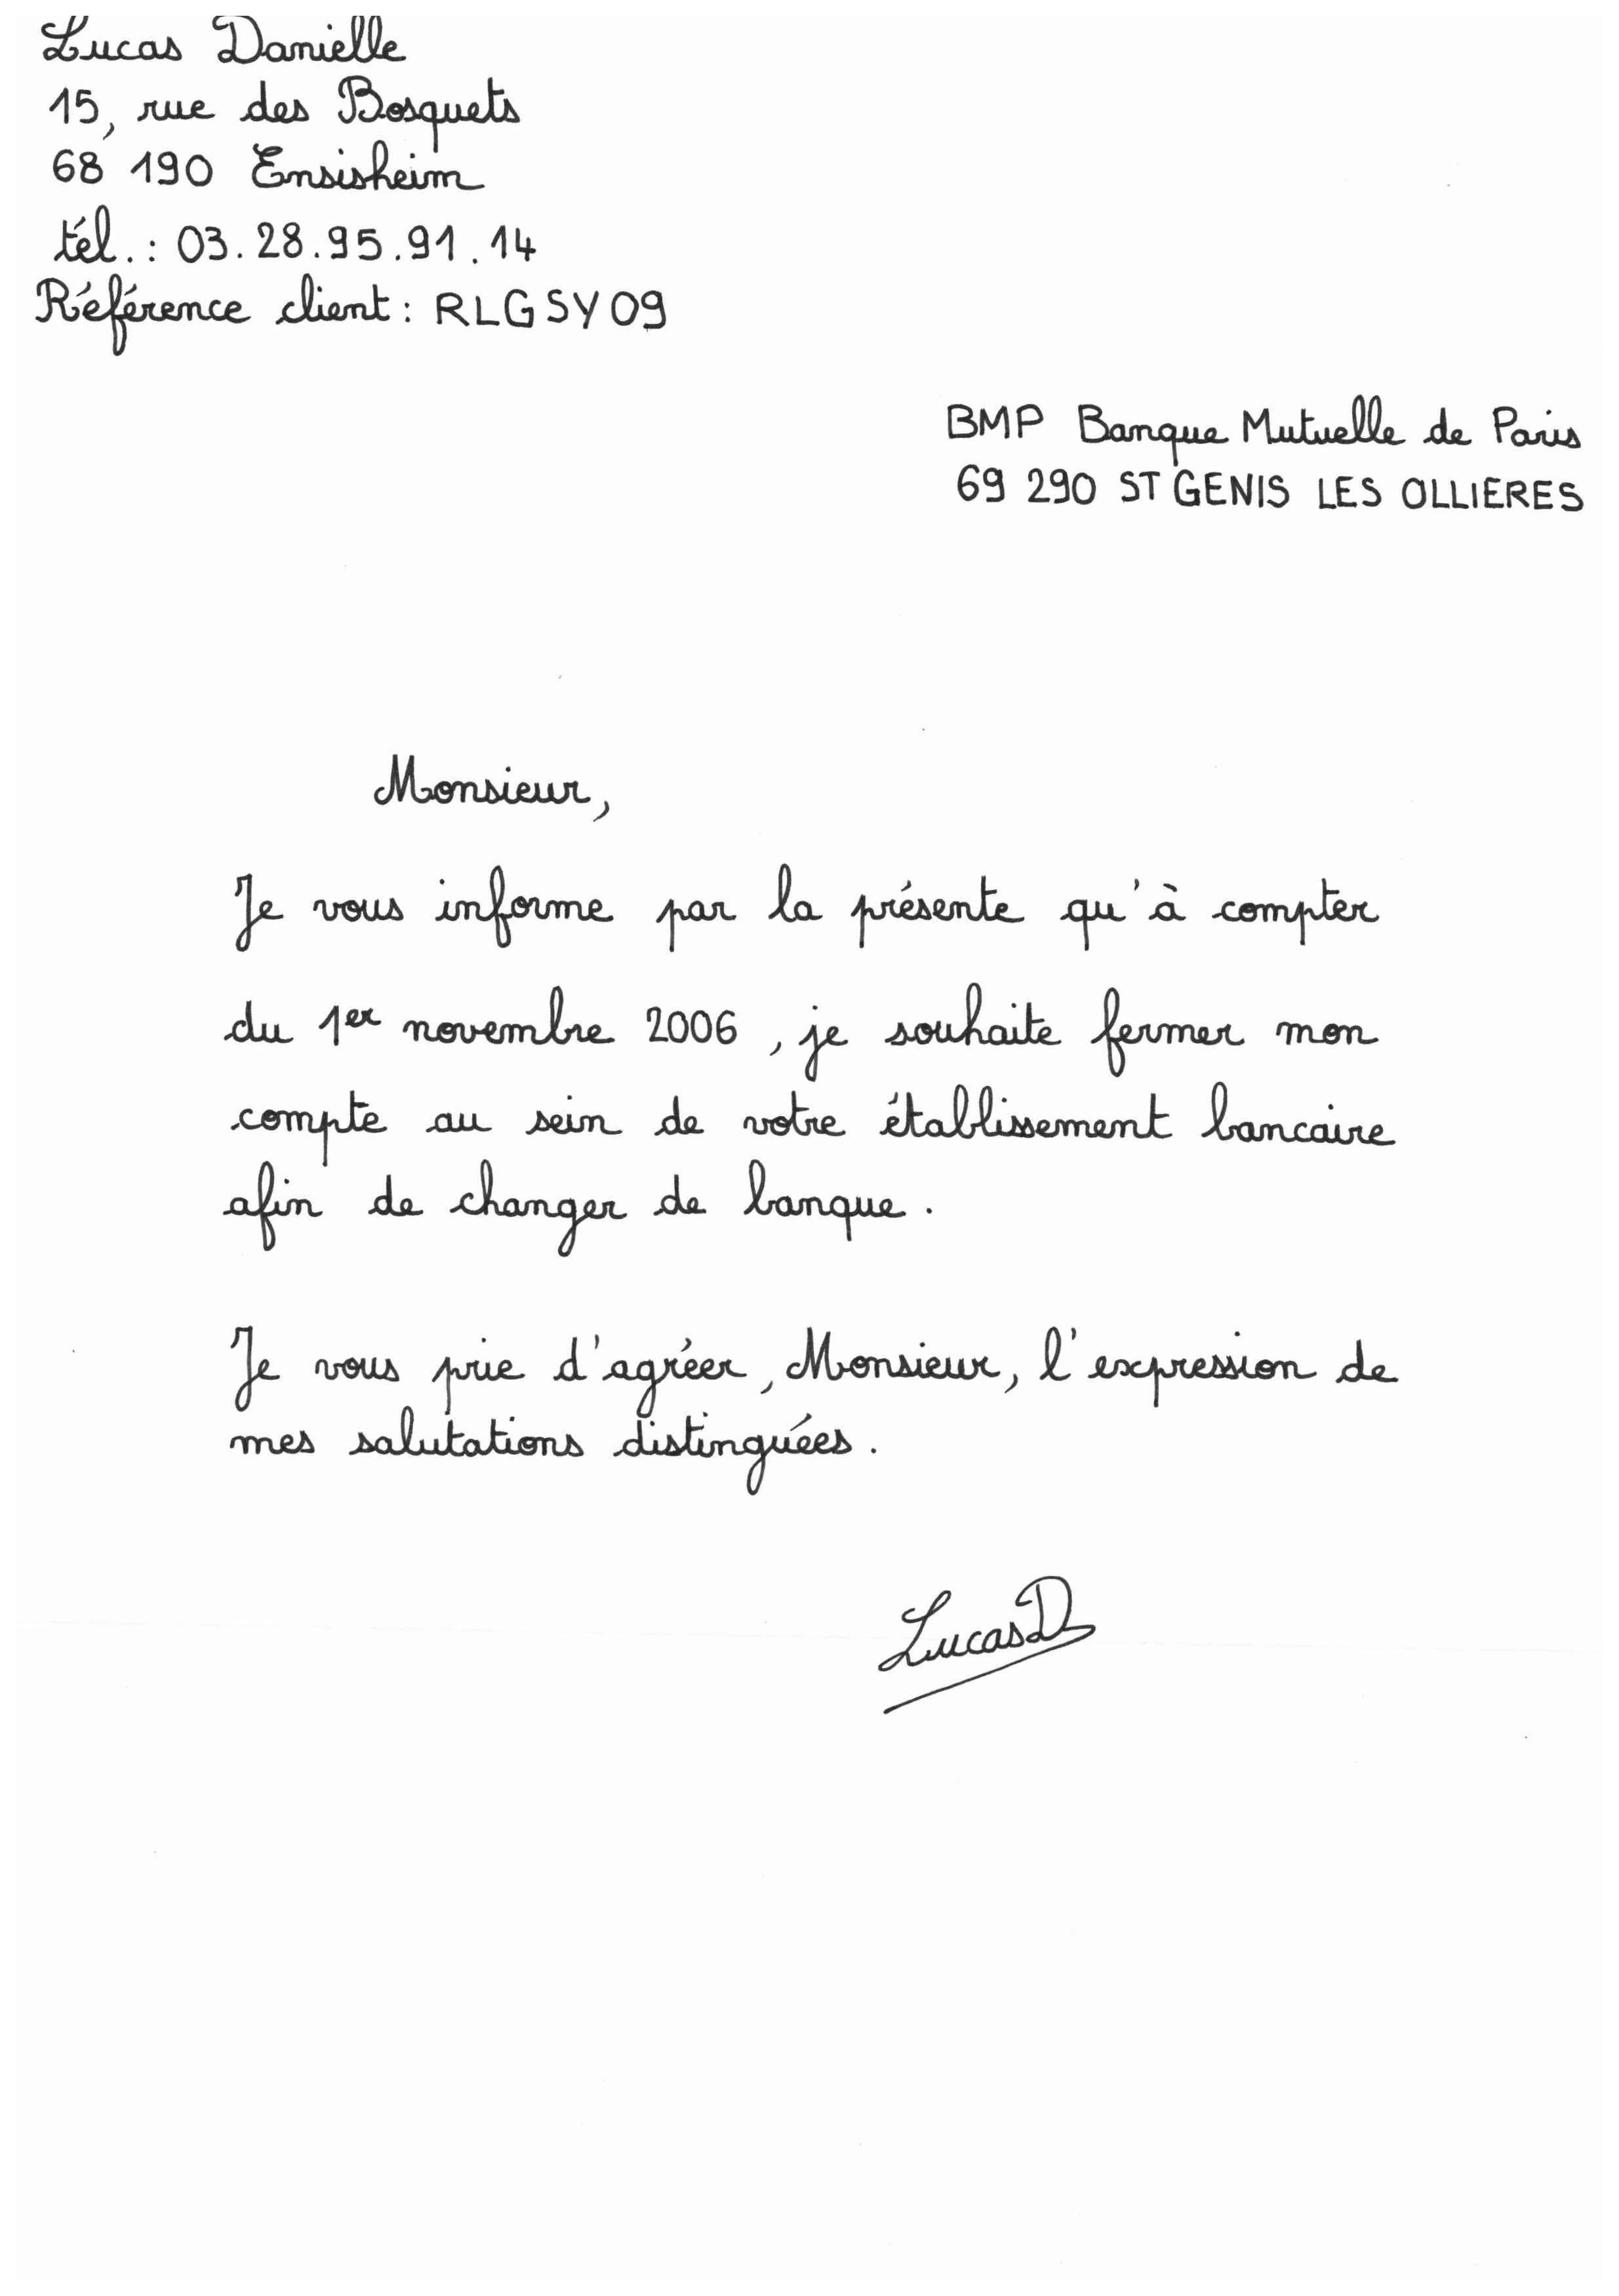 Lucas Danielle
15, rue des Bosquets
68 190 Ensisheim
tél. : 03.28.95.91.14
Référence client : RLGSY09
BMP Banque Mutuelle de Paris
69 290 ST GENIS LES OLLIERES
Monsieur,
Je vous informe par la présente qu'à compter
du 1er novembre 2006, je souhaite fermer mon
compte au sein de votre établissement bancaire
afin de changer de banque.
Je vous prie d'agréer, Monsieur, l'expression de
mes salutations distinguées.
Lucas D